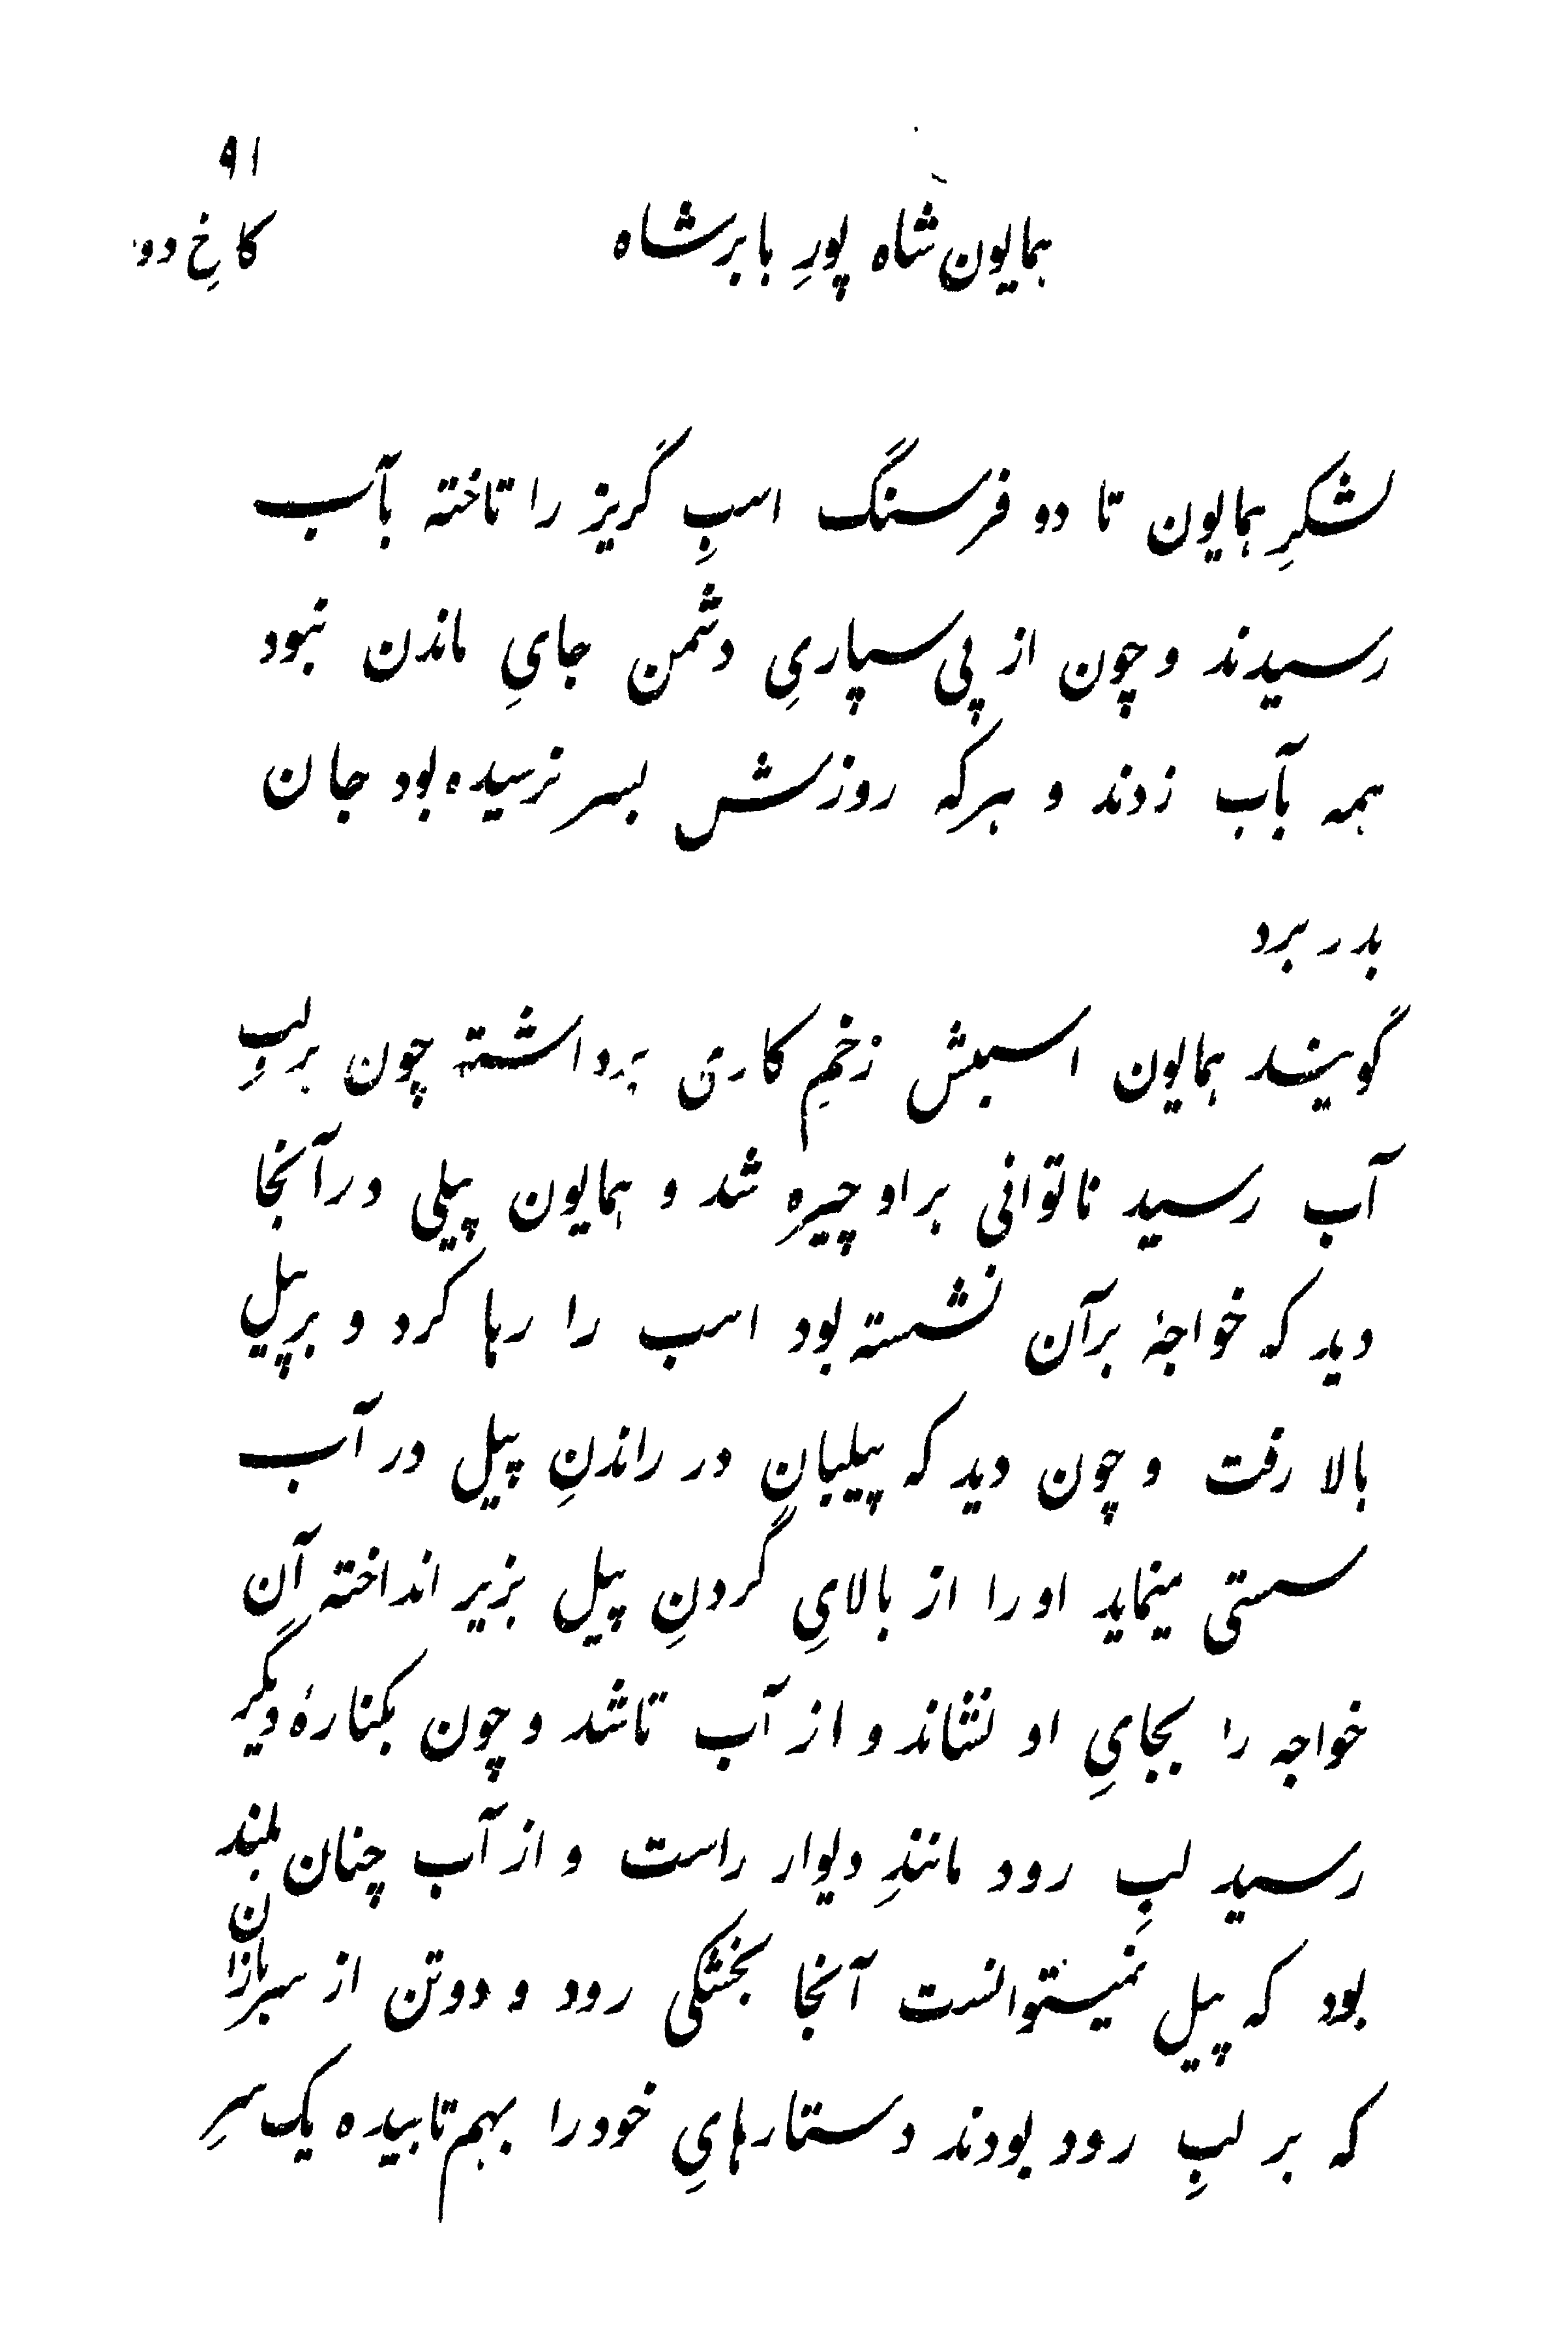 ۹۱
همایون شاه پورِ بابر شاه
کاخِ دو
لشکرِ همایون تا دو فرسنگ اسبِ گریز را تاخته بآب
رسیدند و چون از پی سپاریِ دشمن جایِ ماندن نبود
همه بآب زدند و هر که روزش بسر نرسیده بود جان
بدر برد
گویند همایون اسبش زخمِ کاری برداشته چون بر لبِ
آب رسید ناتوانی بر او چیره شد و همایون پیلی در آنجا
دید که خواجهٔ بر آن نشسته بود اسب را رها کرد و بر پیل
بالا رفت و چون دید که پیلبان در راندنِ پیل در آب
سستی مینماید او را از بالایِ گردنِ پیل بزیر انداخته آن
خواجه را بجایِ او نشاند و از آب تا شد و چون بکنارهٔ دیگر
رسید لبِ رود مانندِ دیوار راست و از آب چنان بلند
بود که پیل نمیتوانست آنجا بخشکی رود و دو تن از سربازان
که بر لبِ رود بودند دستارهایِ خود را بهم تابیده یک سرِ